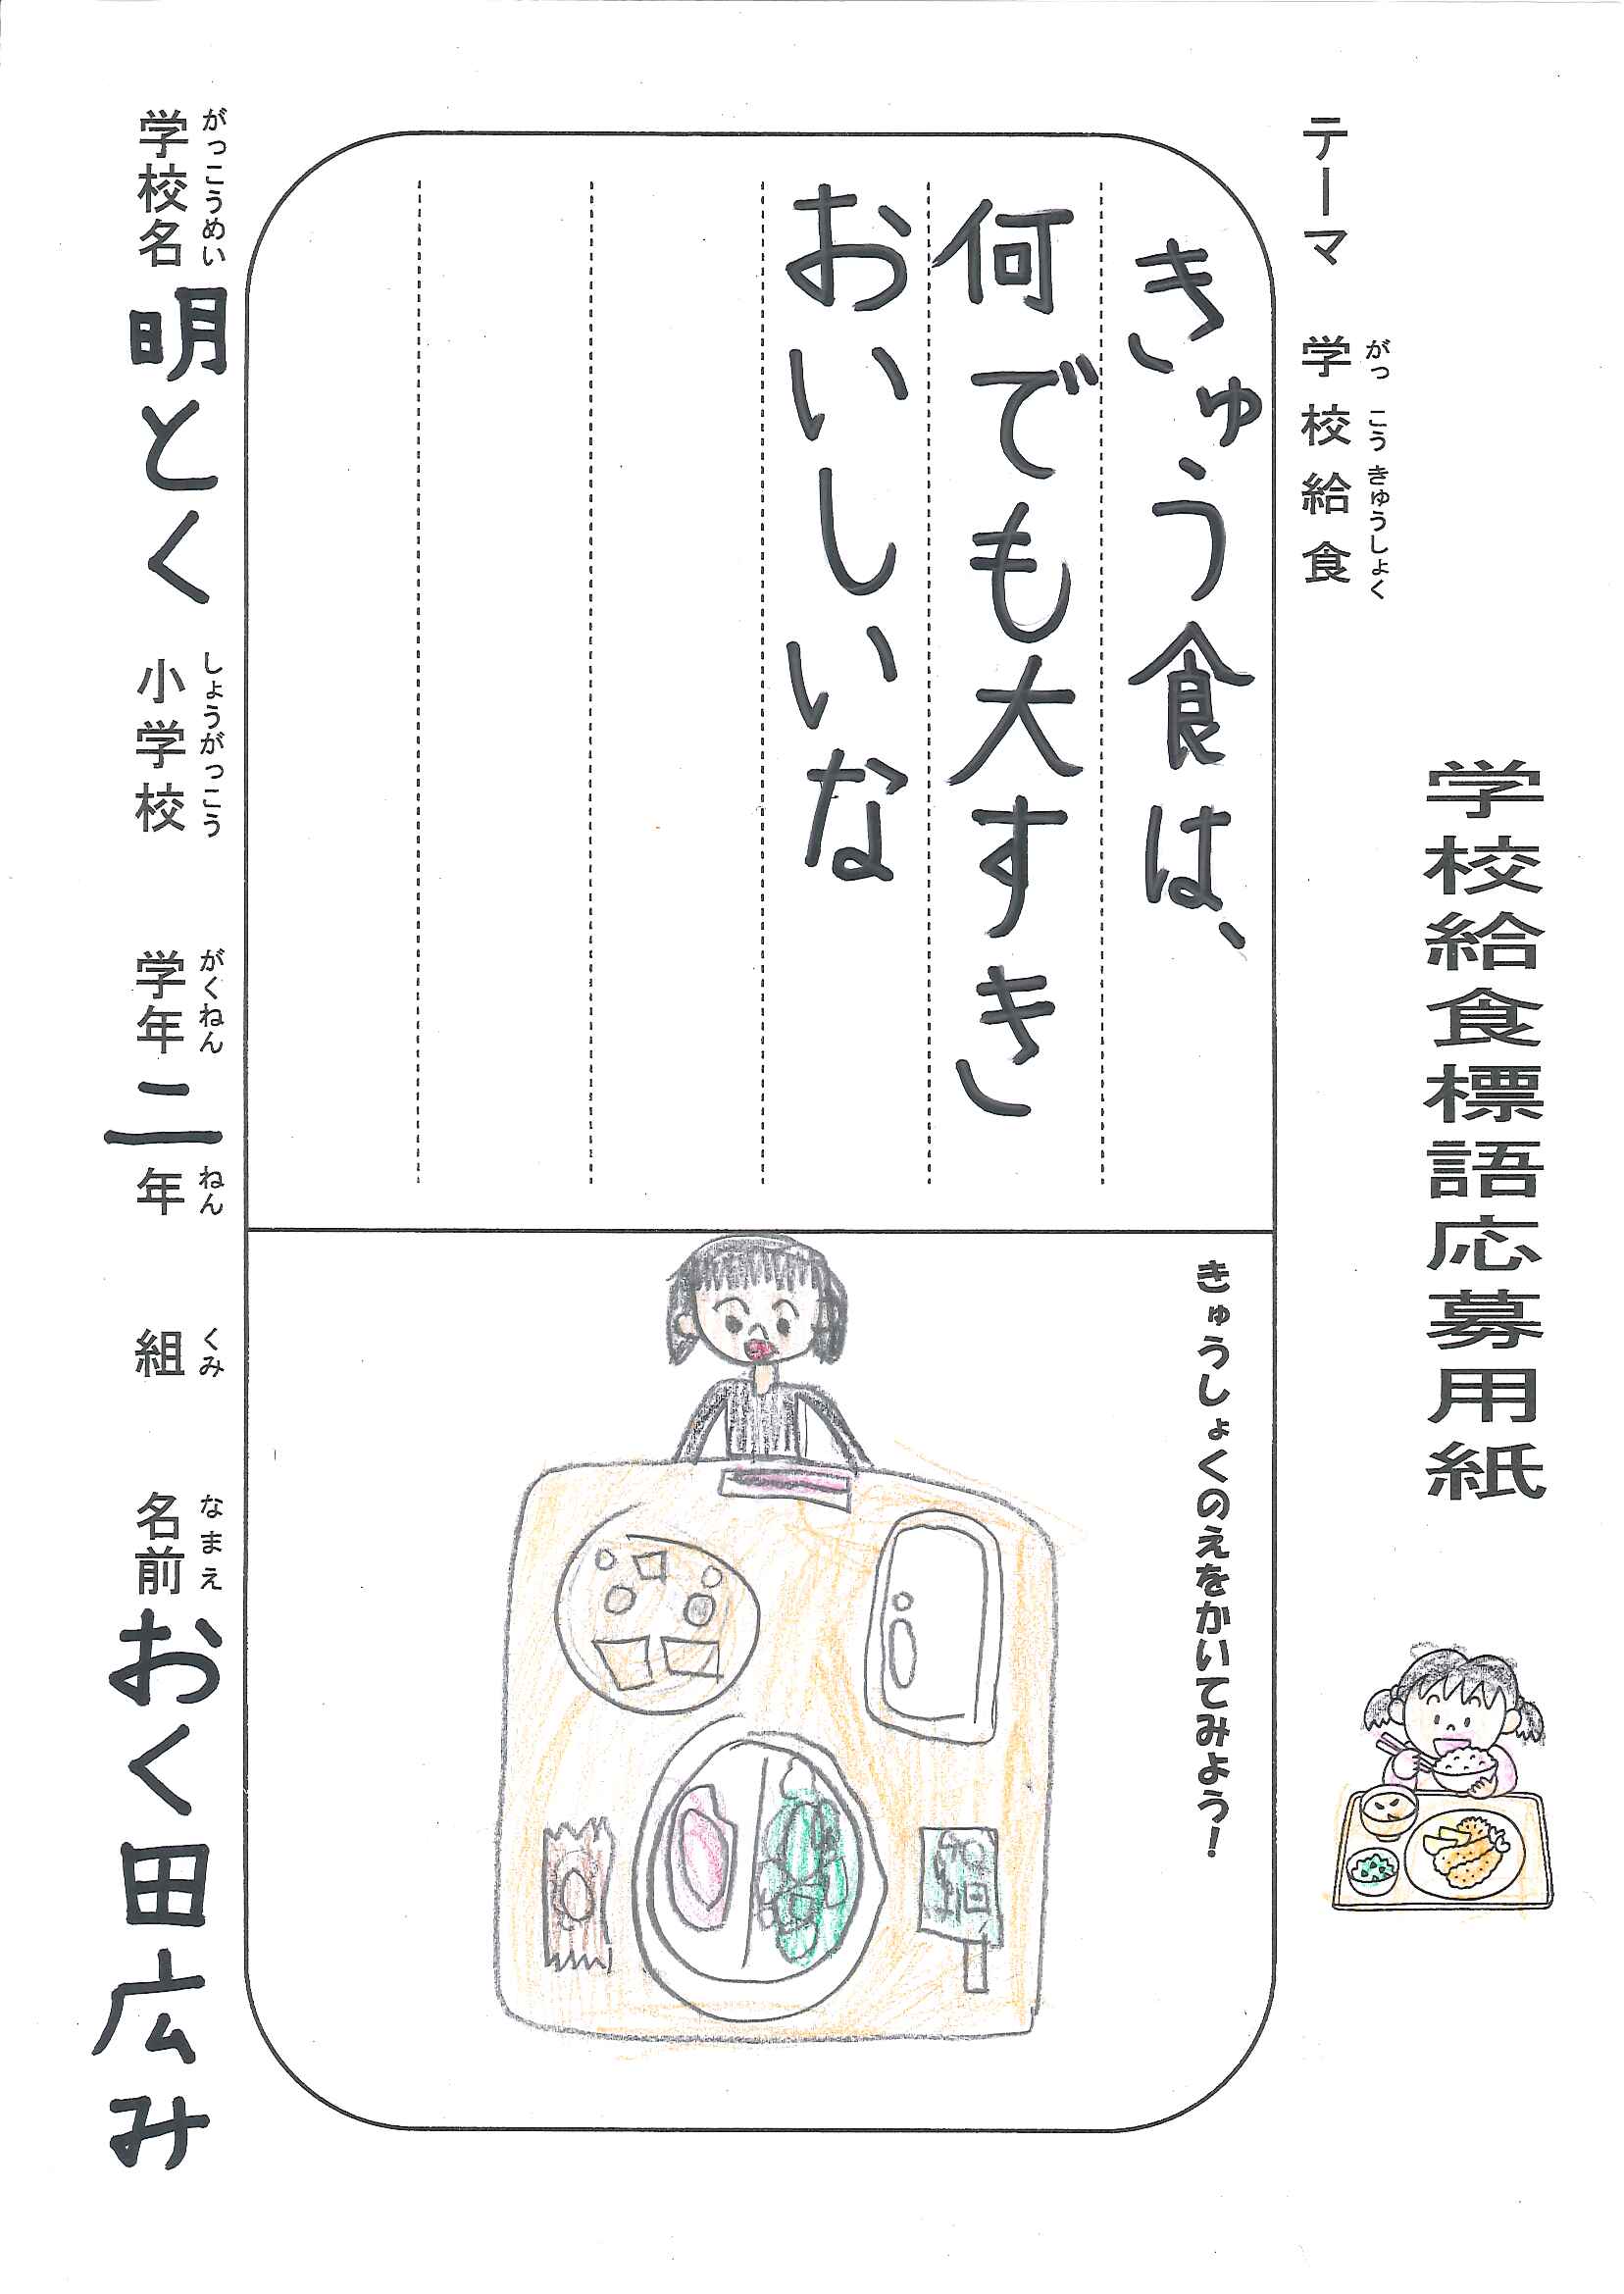 学校給食標語応募用紙
テーマ 学校給食
がっこうきゅうしょく
きゅう食は、
何でも大すき
おいしいな
きゅうしょくのえをかいてみよう!
がっこうめい しょうがっこう がくねん ねん くみ なまえ
学校名 明とく 小学校 学年 二年 組 名前 おく田広み